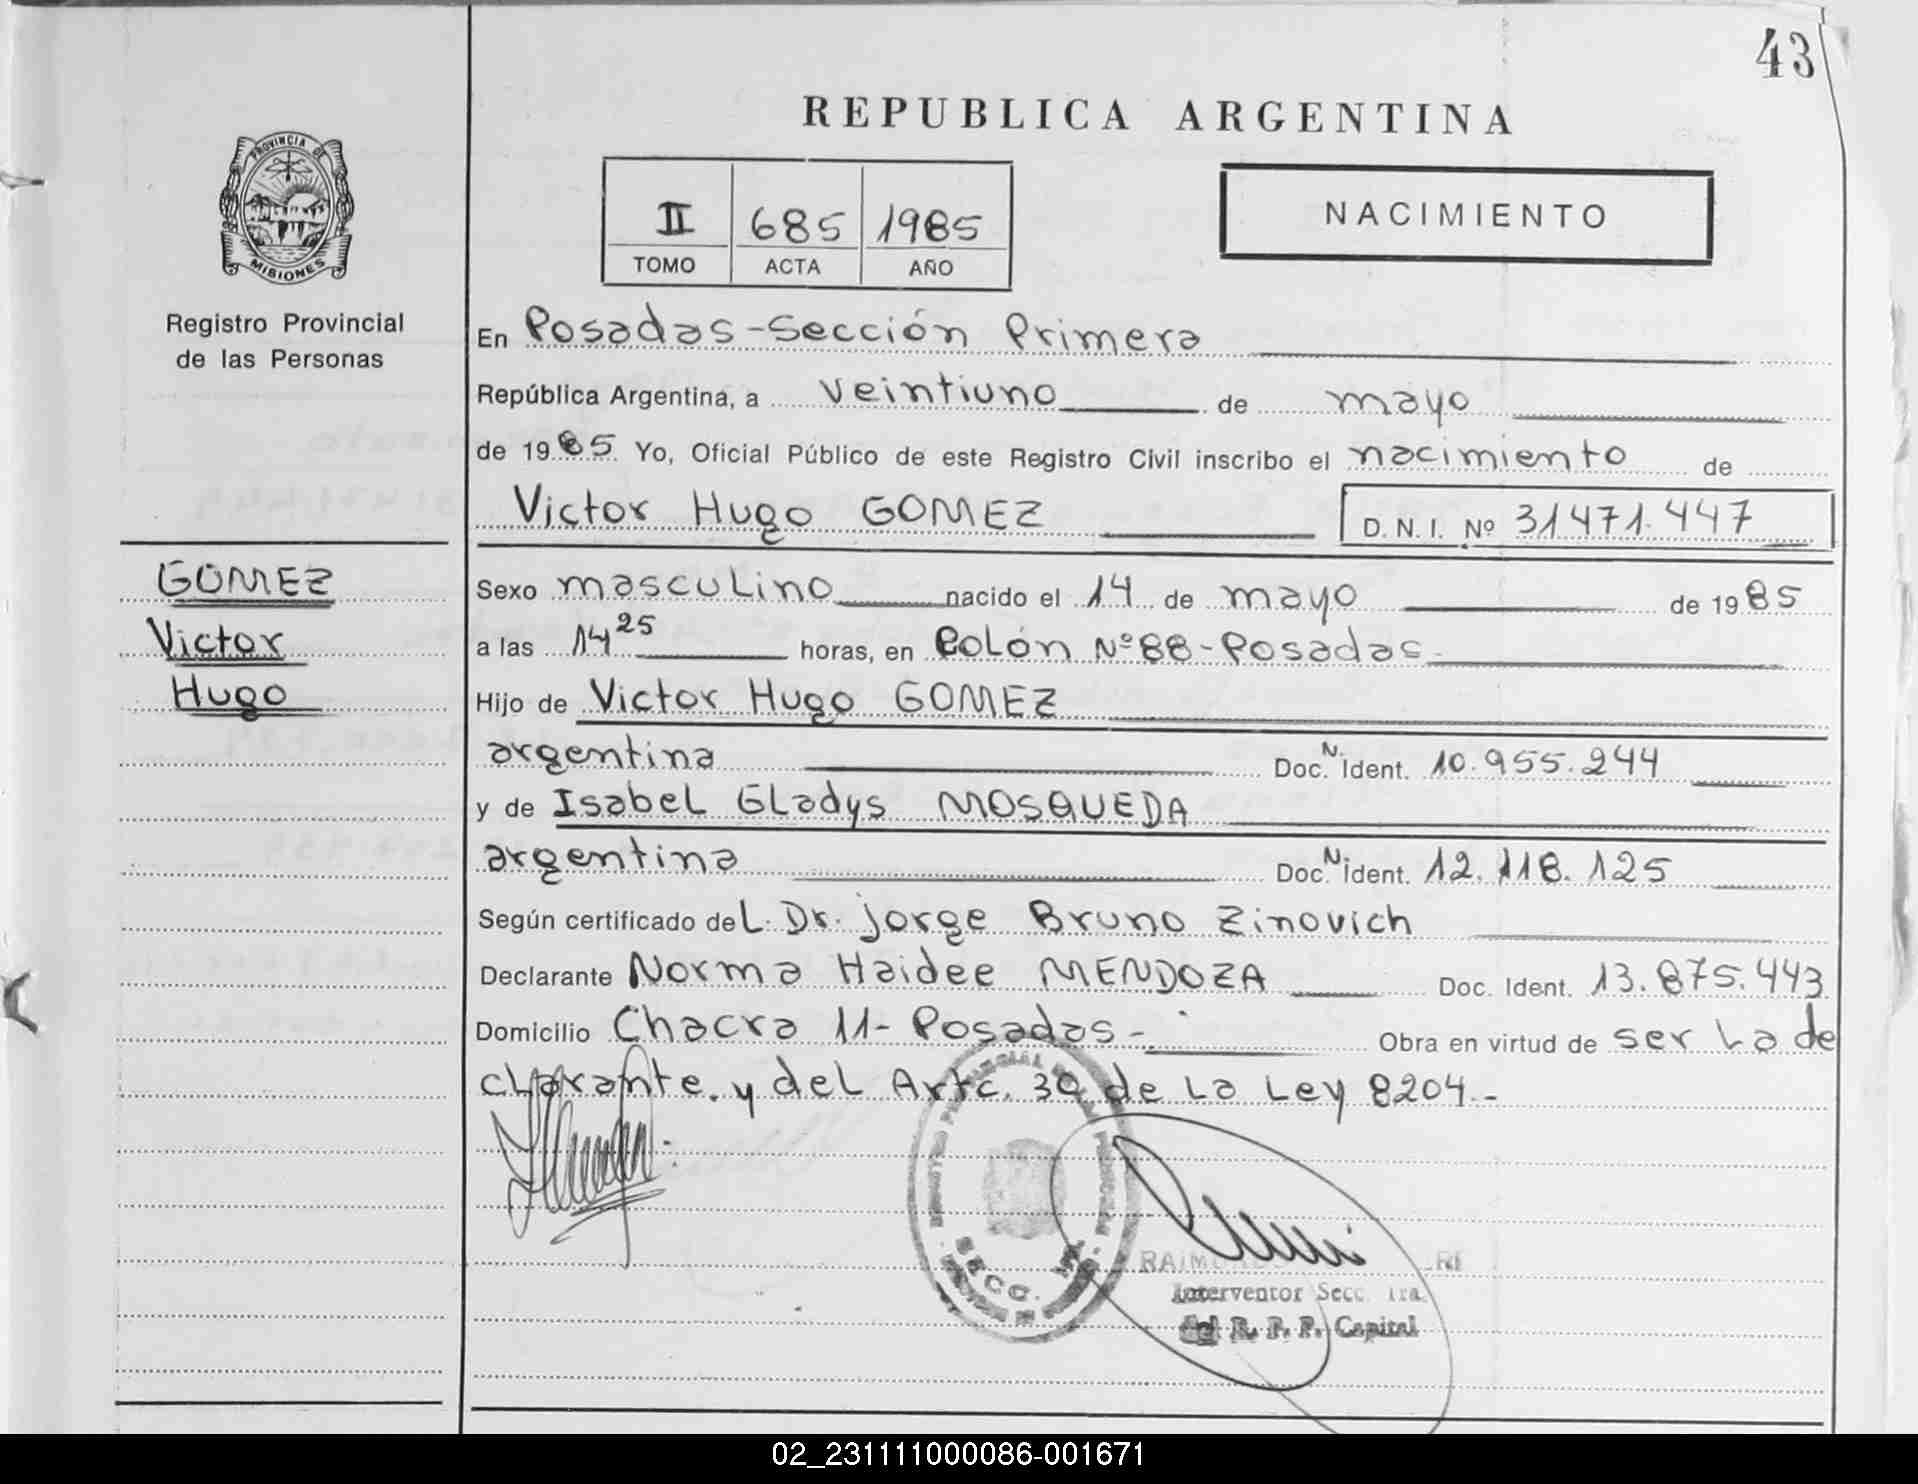 43
REPUBLICA ARGENTINA
PROVINCIA DE
MISIONES
Registro Provincial
de las Personas
II 685 1985
TOMO ACTA AÑO
NACIMIENTO
En Posadas-Sección Primera
República Argentina, a veintiuno de mayo
de 1985 Yo, Oficial Público de este Registro Civil inscribo el nacimiento de
Victor Hugo GOMEZ D.N.I. Nº 31471.447
GOMEZ
Victor
Hugo
Sexo masculino nacido el 14 de mayo de 1985
a las 14 25 horas, en Colón Nº 88-Posadas
Hijo de Victor Hugo GOMEZ
argentina Doc. N. Ident. 10.955.244
y de Isabel Gladys MOSQUEDA
argentina Doc. N. Ident. 12.118.125
Según certificado del Dr. Jorge Bruno Zinovich
Declarante Norma Haidee MENDOZA Doc. Ident. 13.875.443
Domicilio Chacra 11- Posadas- Obra en virtud de ser la de
clarante. y del Artc. 30 de la Ley 8204.-
SECC.
Interventor Secc. 1ra.
del R. P. P. Capital
02_231111000086-001671